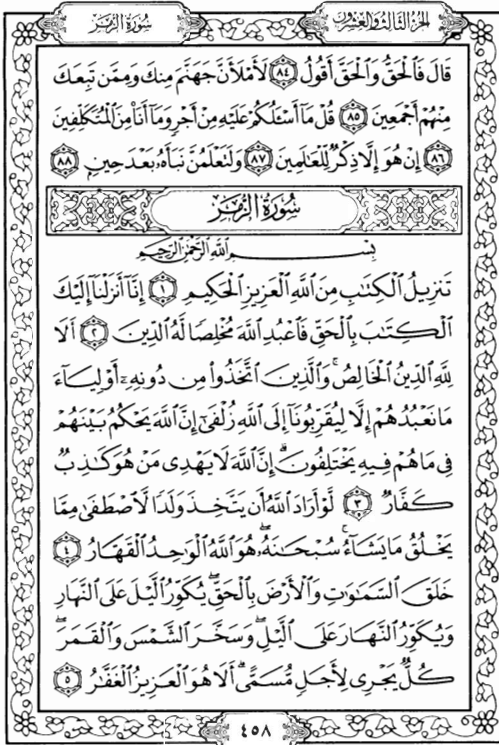 سُورَةُ الزُّمَرِ
الجُزْءُ الثَّالِثُ وَالعِشْرُونَ
قَالَ فَالْحَقُّ وَالْحَقَّ أَقُولُ ٨٤ لَأَمْلَأَنَّ جَهَنَّمَ مِنكَ وَمِمَّن تَبِعَكَ
مِنْهُمْ أَجْمَعِينَ ٨٥ قُلْ مَا أَسْـَٔلُكُمْ عَلَيْهِ مِنْ أَجْرٍ وَمَا أَنَا۠ مِنَ الْمُتَكَلِّفِينَ
٨٦ إِنْ هُوَ إِلَّا ذِكْرٌ لِّلْعَالَمِينَ ٨٧ وَلَتَعْلَمُنَّ نَبَأَهُۥ بَعْدَ حِينٍۭ ٨٨
سُورَةُ الزُّمَرِ
بِسْمِ اللَّهِ الرَّحْمَٰنِ الرَّحِيمِ
تَنزِيلُ الْكِتَابِ مِنَ اللَّهِ الْعَزِيزِ الْحَكِيمِ ١ إِنَّا أَنزَلْنَا إِلَيْكَ
الْكِتَابَ بِالْحَقِّ فَاعْبُدِ اللَّهَ مُخْلِصًا لَّهُ الدِّينَ ٢ أَلَا
لِلَّهِ الدِّينُ الْخَالِصُ ۚ وَالَّذِينَ اتَّخَذُوا مِن دُونِهِۦ أَوْلِيَاءَ
مَا نَعْبُدُهُمْ إِلَّا لِيُقَرِّبُونَا إِلَى اللَّهِ زُلْفَىٰ إِنَّ اللَّهَ يَحْكُمُ بَيْنَهُمْ
فِي مَا هُمْ فِيهِ يَخْتَلِفُونَ ۗ إِنَّ اللَّهَ لَا يَهْدِي مَنْ هُوَ كَاذِبٌ
كَفَّارٌ ٣ لَّوْ أَرَادَ اللَّهُ أَن يَتَّخِذَ وَلَدًا لَّاصْطَفَىٰ مِمَّا
يَخْلُقُ مَا يَشَاءُ ۚ سُبْحَانَهُۥ ۖ هُوَ اللَّهُ الْوَاحِدُ الْقَهَّارُ ٤
خَلَقَ السَّمَاوَاتِ وَالْأَرْضَ بِالْحَقِّ ۖ يُكَوِّرُ اللَّيْلَ عَلَى النَّهَارِ
وَيُكَوِّرُ النَّهَارَ عَلَى اللَّيْلِ ۖ وَسَخَّرَ الشَّمْسَ وَالْقَمَرَ ۖ
كُلٌّ يَجْرِي لِأَجَلٍ مُّسَمًّى ۗ أَلَا هُوَ الْعَزِيزُ الْغَفَّارُ ٥
٤٥٨